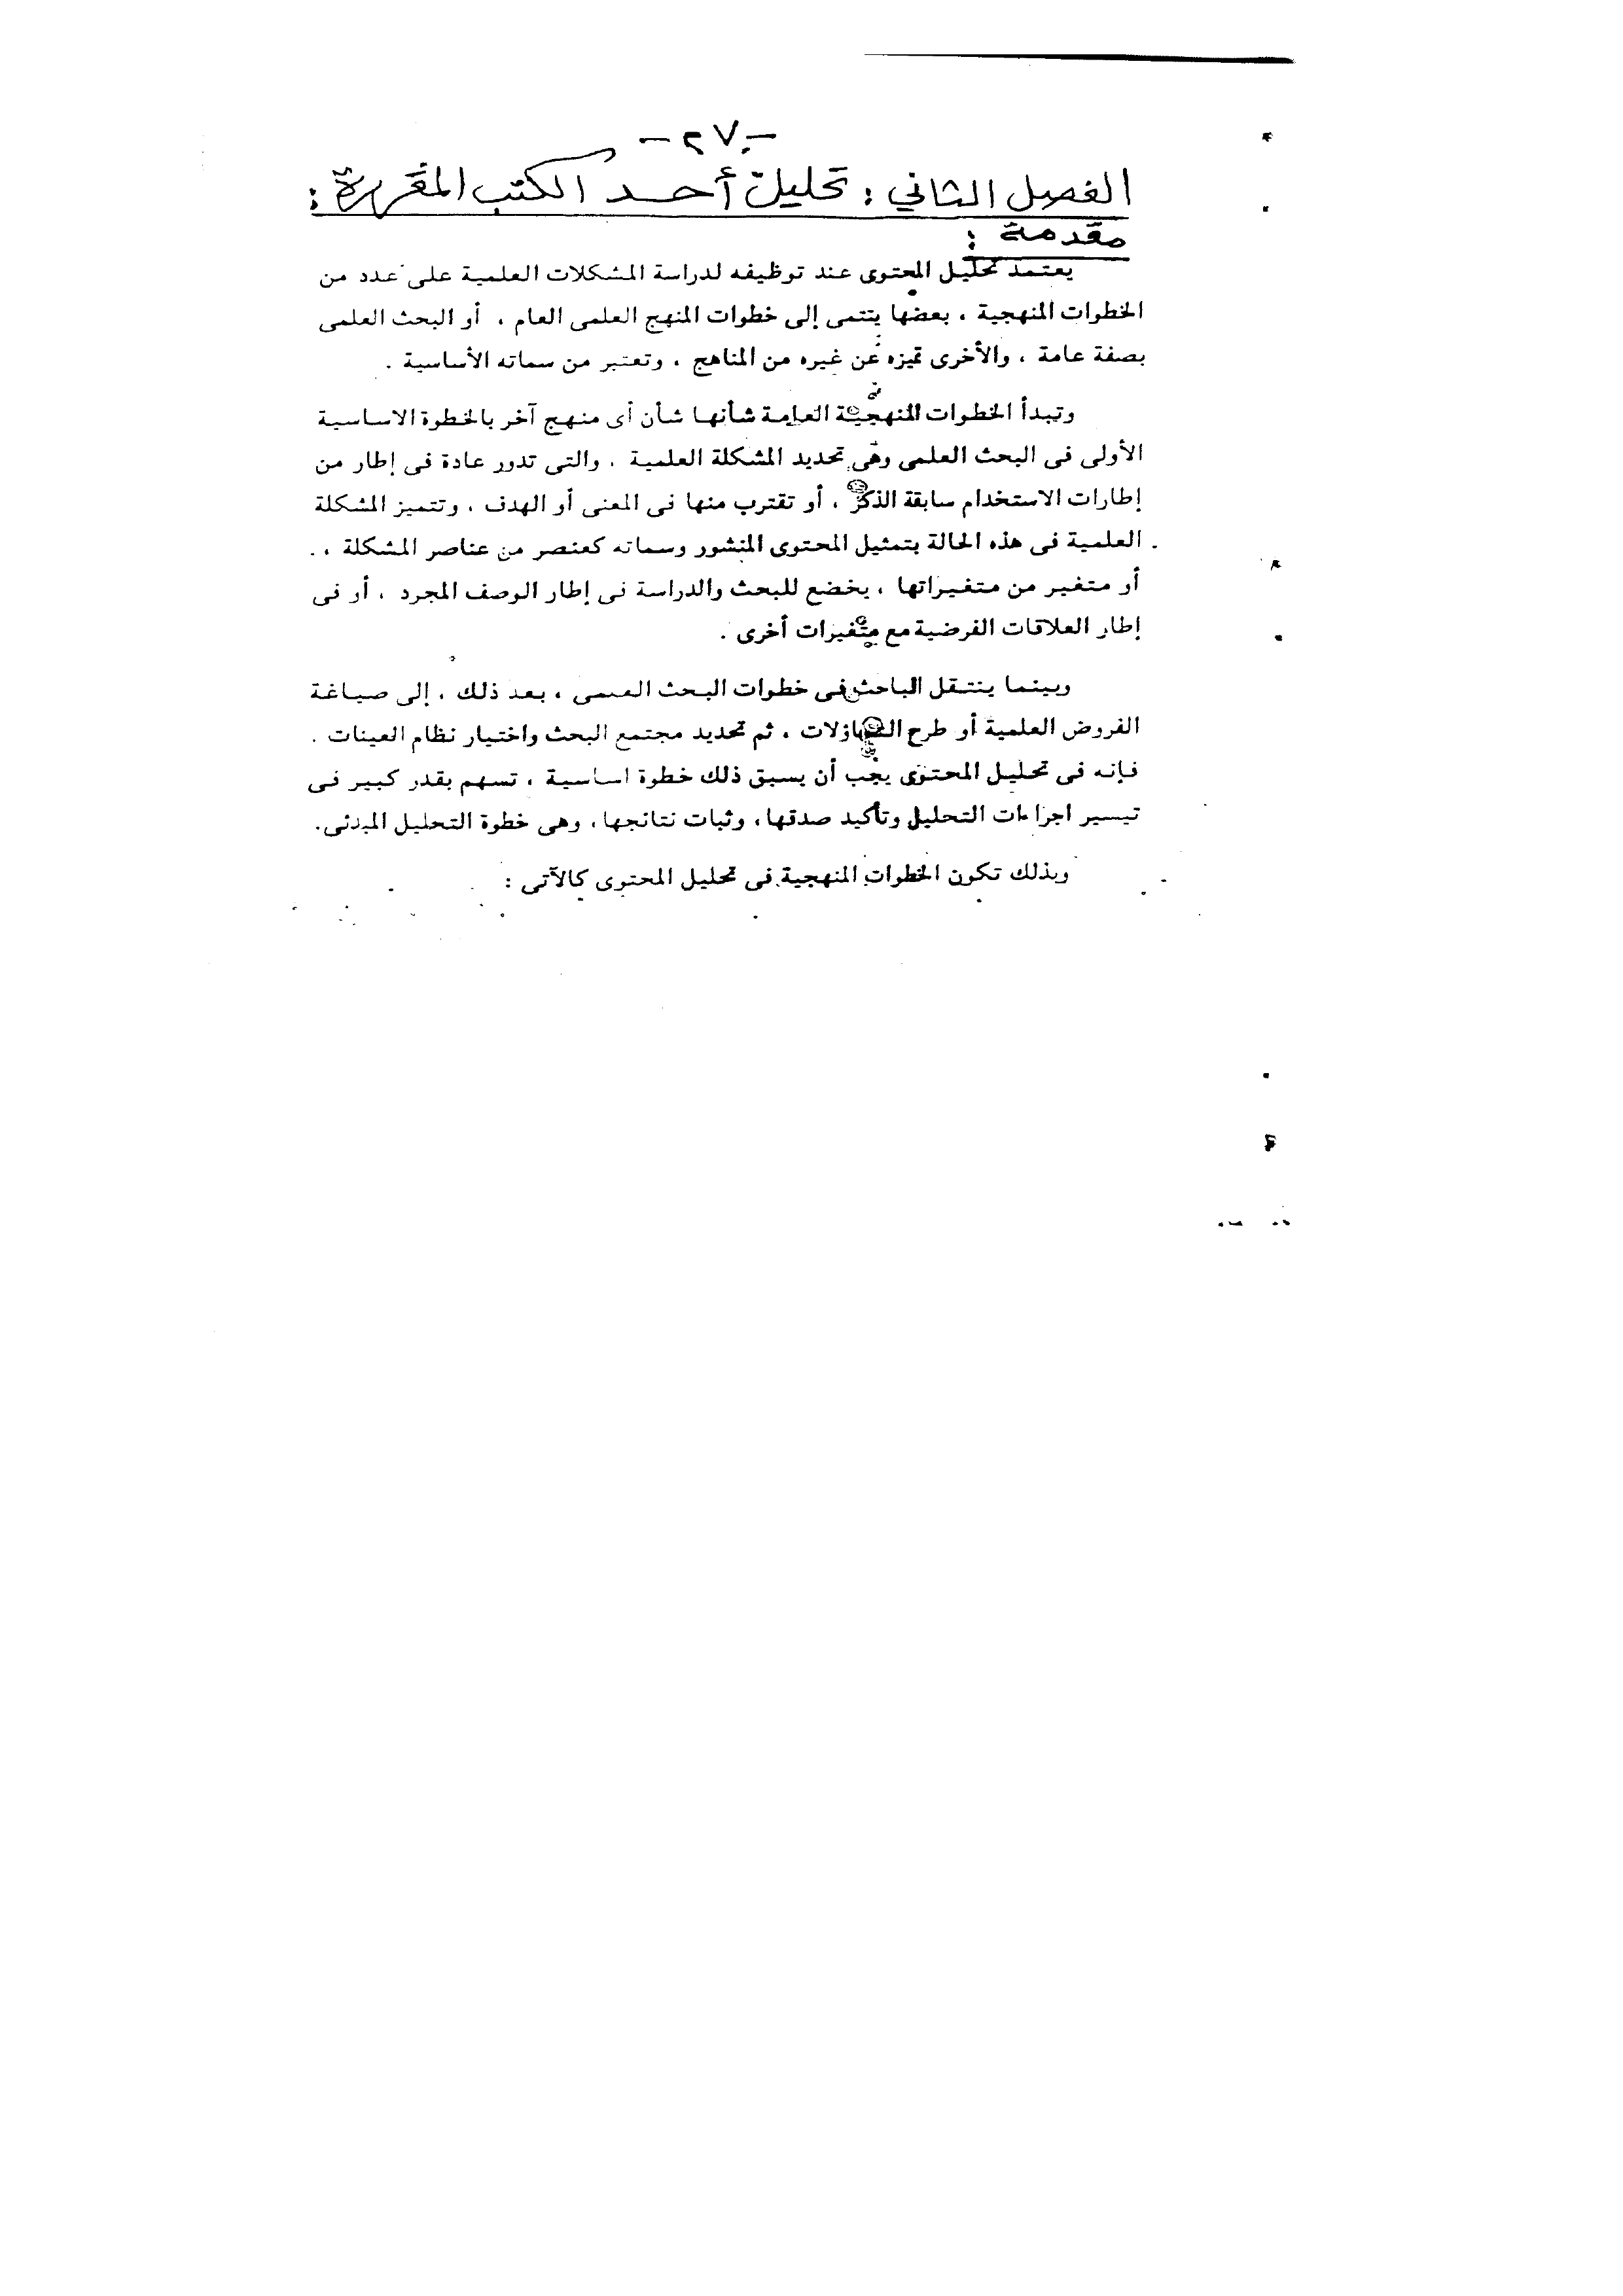 -٢٧-
الفصل الثاني : تحليل أحد الكتب المقررة :
مقدمة :
يعتمد تحليل المحتوى عند توظيفه لدراسة المشكلات العلمية على عدد من
الخطوات المنهجية ، بعضها ينتمى إلى خطوات المنهج العلمى العام ، أو البحث العلمى
بصفة عامة ، والأخرى تميزه عن غيره من المناهج ، وتعتبر من سماته الأساسية .
وتبدأ الخطوات المنهجية العامة شأنها شأن أى منهج آخر بالخطوة الاساسية
الأولى فى البحث العلمى وهى تحديد المشكلة العلمية ، والتى تدور عادة فى إطار من
إطارات الاستخدام سابقة الذكر ، أو تقترب منها فى المعنى أو الهدف ، وتتميز المشكلة
العلمية فى هذه الحالة بتمثيل المحتوى المنشور وسماته كعنصر من عناصر المشكلة ،
أو متغير من متغيراتها ، يخضع للبحث والدراسة فى إطار الوصف المجرد ، أو فى
إطار العلاقات الفرضية مع متغيرات أخرى .
وبينما ينتقل الباحث فى خطوات البحث العلمى ، بعد ذلك ، إلى صياغة
الفروض العلمية أو طرح التساؤلات ، ثم تحديد مجتمع البحث واختيار نظام العينات .
فإنه فى تحليل المحتوى يجب أن يسبق ذلك خطوة اساسية ، تسهم بقدر كبير فى
تيسير اجراءات التحليل وتأكيد صدقها ، وثبات نتائجها ، وهى خطوة التحليل المبدئى .
وبذلك تكون الخطوات المنهجية فى تحليل المحتوى كالآتى :